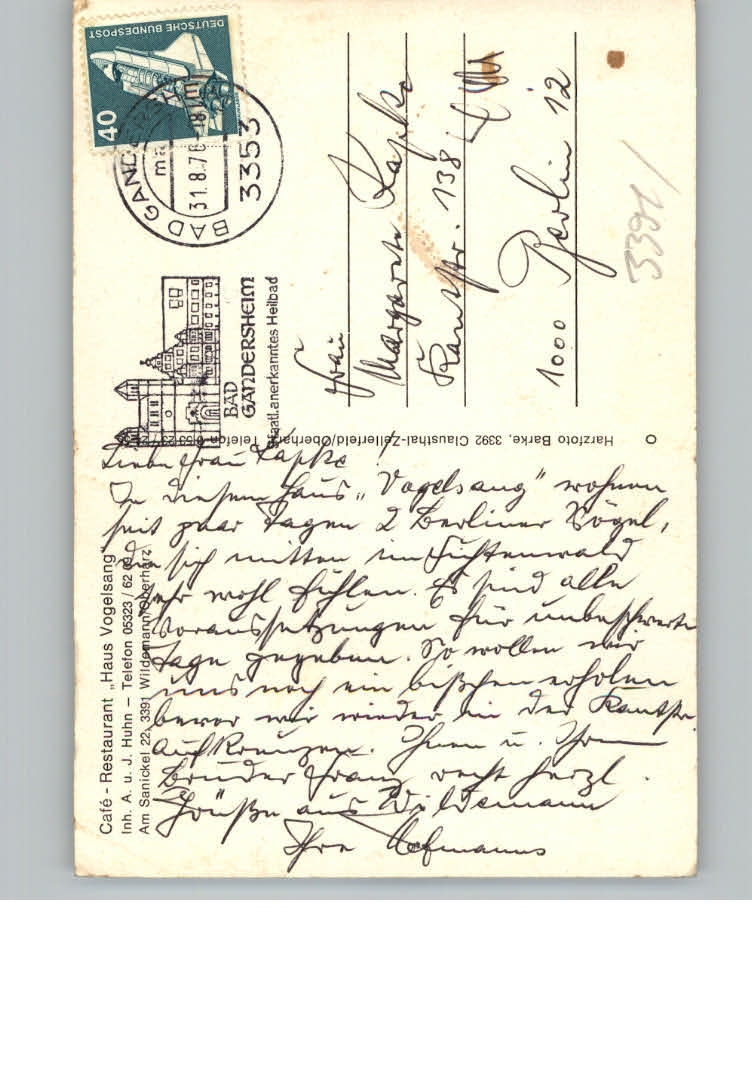 Café - Restaurant „Haus Vogelsang"
Inh. A. u. J. Huhn – Telefon 05323 / 62
Am Sanickel 22, 3391 Wildemann/Oberharz
Liebe Frau Kapke
In diesem Haus „Vogelsang" wohnen
seit paar Tagen 2 Berliner Vögel,
die sich mitten im Fichtenwald
sehr wohl fühlen. Es sind alle
Voraussetzungen für unbeschwerte
Tage gegeben. So wollen wir
uns noch ein bißchen erholen
bevor wir wieder in der Kantstr.
aufkreuzen. Ihnen u. Ihrem
Bruder Franz recht herzl.
Grüße aus Wildemann
Ihre Hofmanns
Harzfoto Barke, 3392 Clausthal-Zellerfeld/Oberharz, Telefon
DEUTSCHE BUNDESPOST
40
BAD GANDERSHEIM
31.8.76-18
3353
BAD
GANDERSHEIM
Staatl. anerkanntes Heilbad
Frau
Margarete Kapke
Kantstr. 138
1000 Berlin 12
3391/